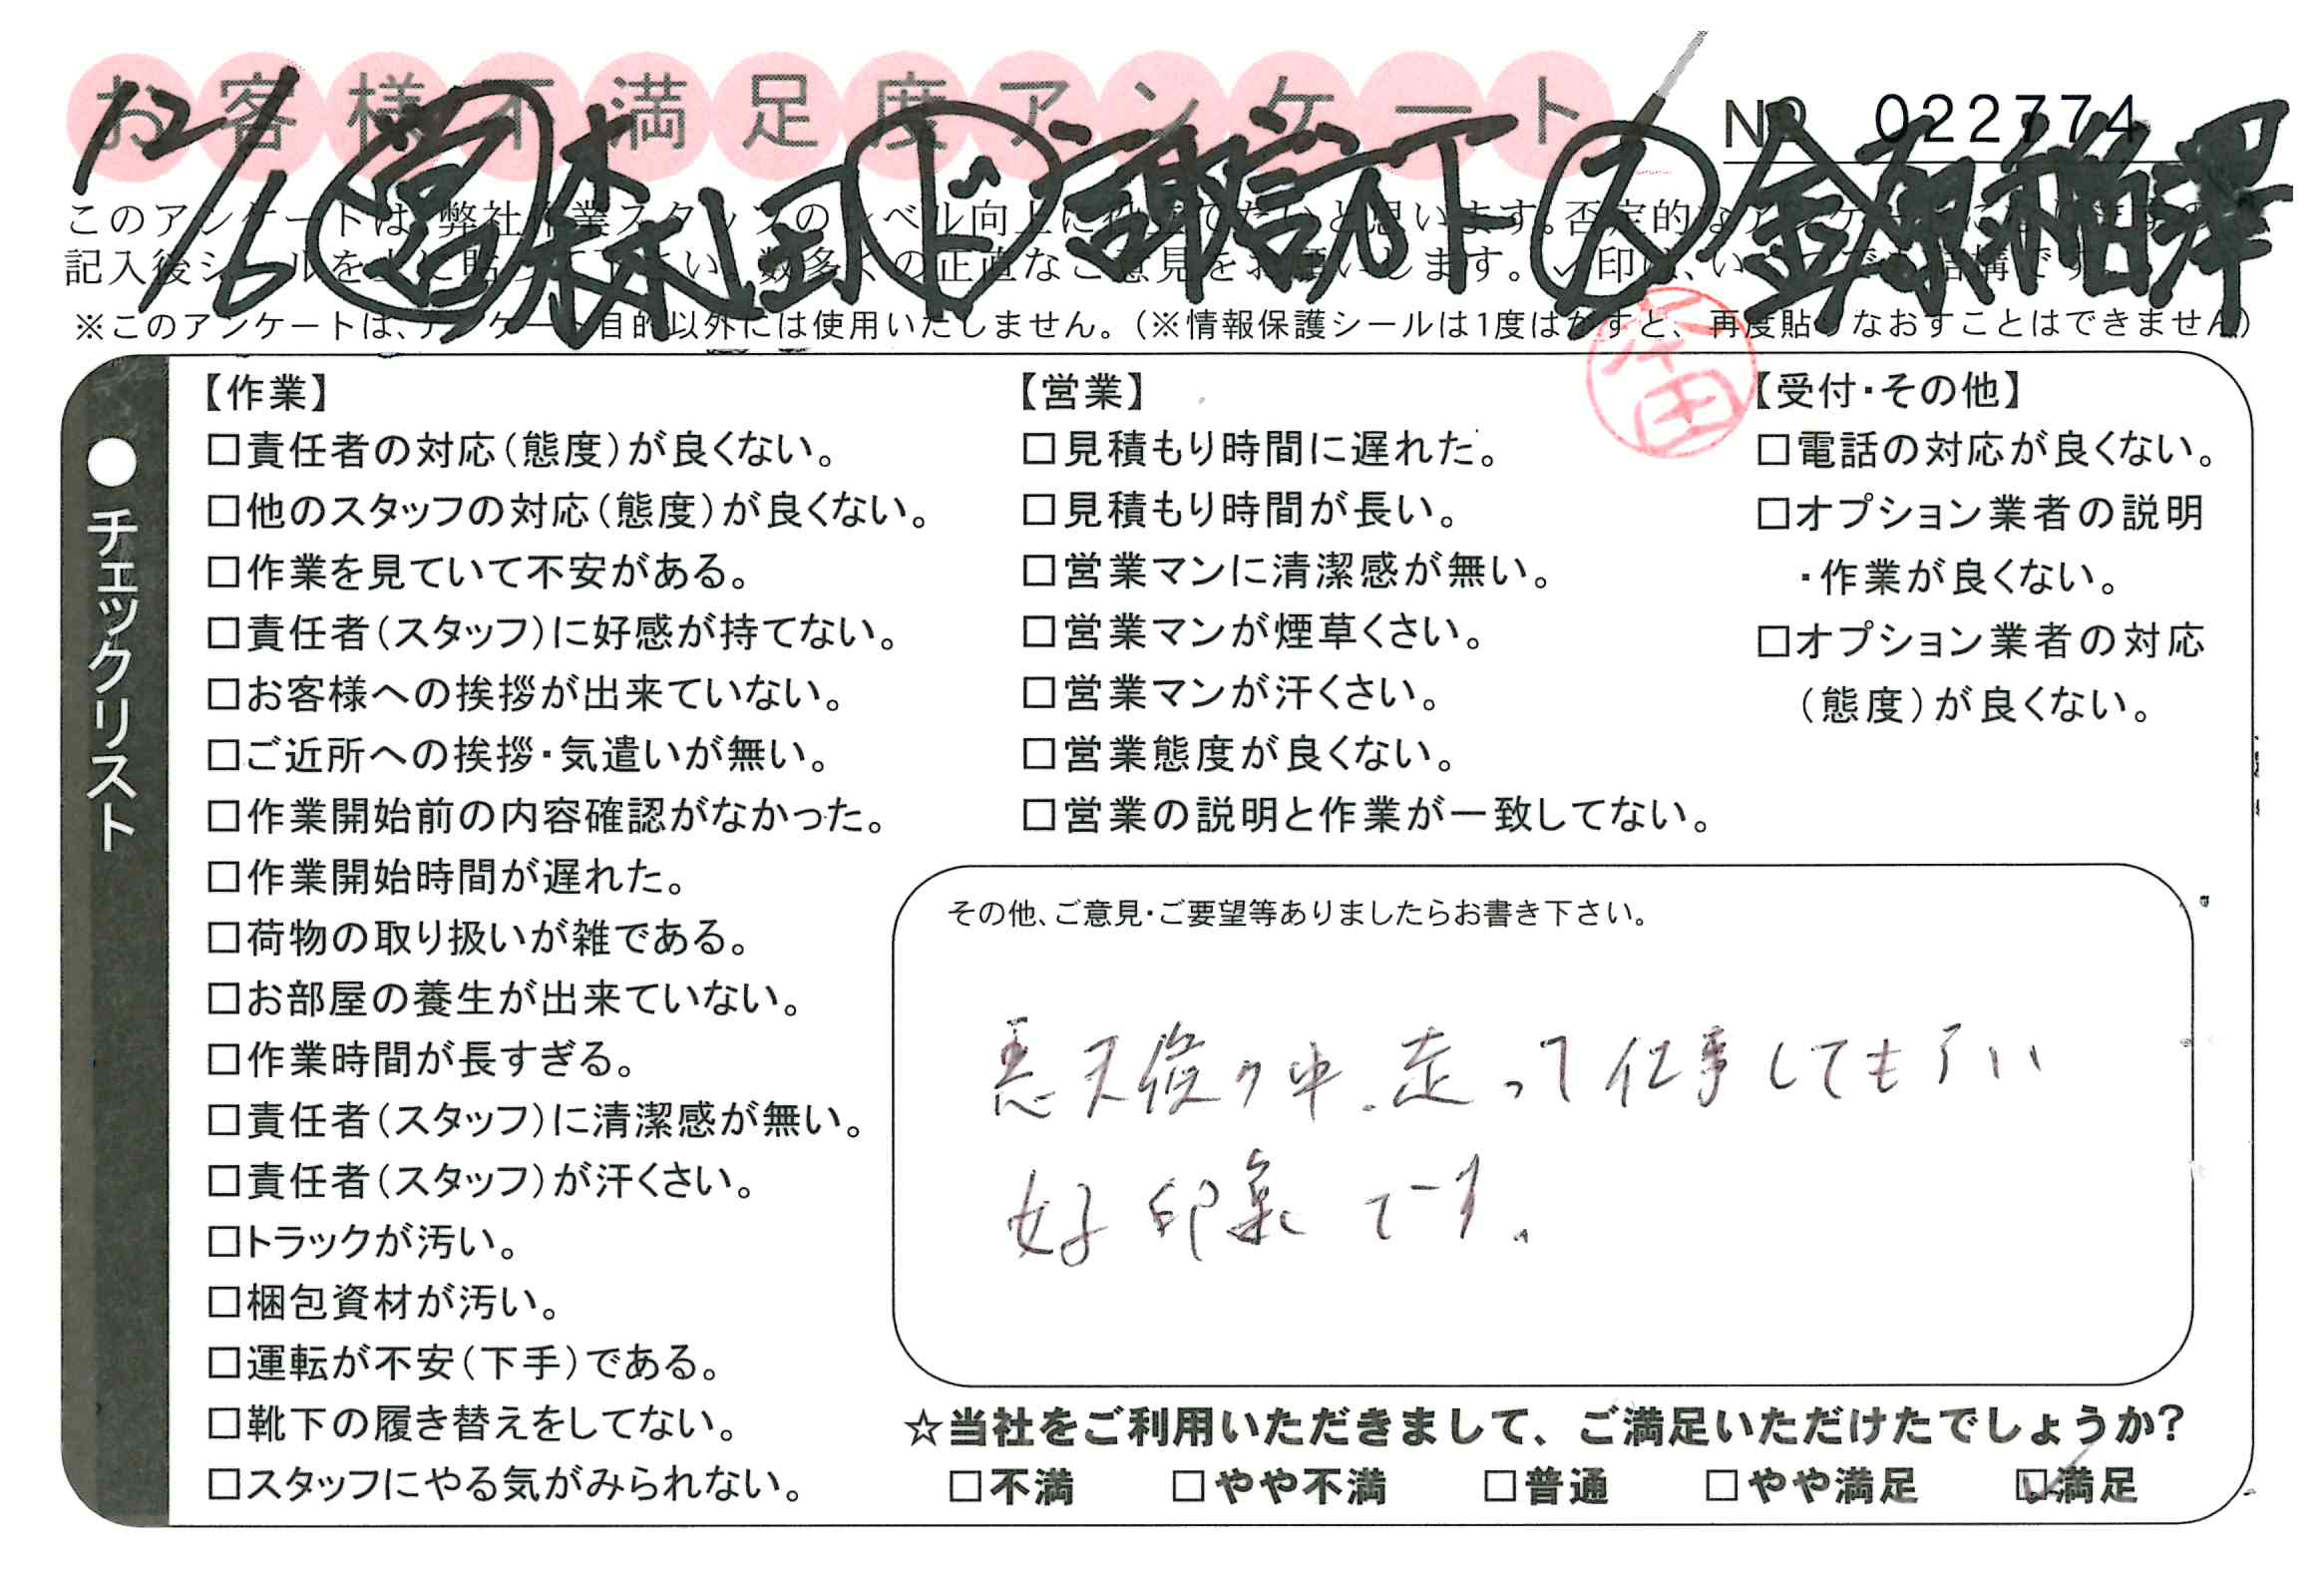 お客様不満足度アンケート
№ 022774
12/6 営 森 ド 諏訪 下 ス 金原 稲澤
このアンケートは、弊社作業スタッフのレベル向上に役立てたいと思います。否定的なアンケート
記入後シールを上に貼って下さい。数多くの正直なご意見をお願いします。✓印は、いくつでも結構です。
※このアンケートは、アンケート目的以外には使用いたしません。(※情報保護シールは1度はがすと、再度貼りなおすことはできません)
●チェックリスト
【作業】
□責任者の対応(態度)が良くない。
□他のスタッフの対応(態度)が良くない。
□作業を見ていて不安がある。
□責任者(スタッフ)に好感が持てない。
□お客様への挨拶が出来ていない。
□ご近所への挨拶・気遣いが無い。
□作業開始前の内容確認がなかった。
□作業開始時間が遅れた。
□荷物の取り扱いが雑である。
□お部屋の養生が出来ていない。
□作業時間が長すぎる。
□責任者(スタッフ)に清潔感が無い。
□責任者(スタッフ)が汗くさい。
□トラックが汚い。
□梱包資材が汚い。
□運転が不安(下手)である。
□靴下の履き替えをしてない。
□スタッフにやる気がみられない。
【営業】
□見積もり時間に遅れた。
□見積もり時間が長い。
□営業マンに清潔感が無い。
□営業マンが煙草くさい。
□営業マンが汗くさい。
□営業態度が良くない。
□営業の説明と作業が一致してない。
【受付・その他】
□電話の対応が良くない。
□オプション業者の説明
・作業が良くない。
□オプション業者の対応
(態度)が良くない。
その他、ご意見・ご要望等ありましたらお書き下さい。
悪天候の中、走って仕事してもらい
好印象です。
☆当社をご利用いただきまして、ご満足いただけたでしょうか?
□不満 □やや不満 □普通 □やや満足 ☑満足